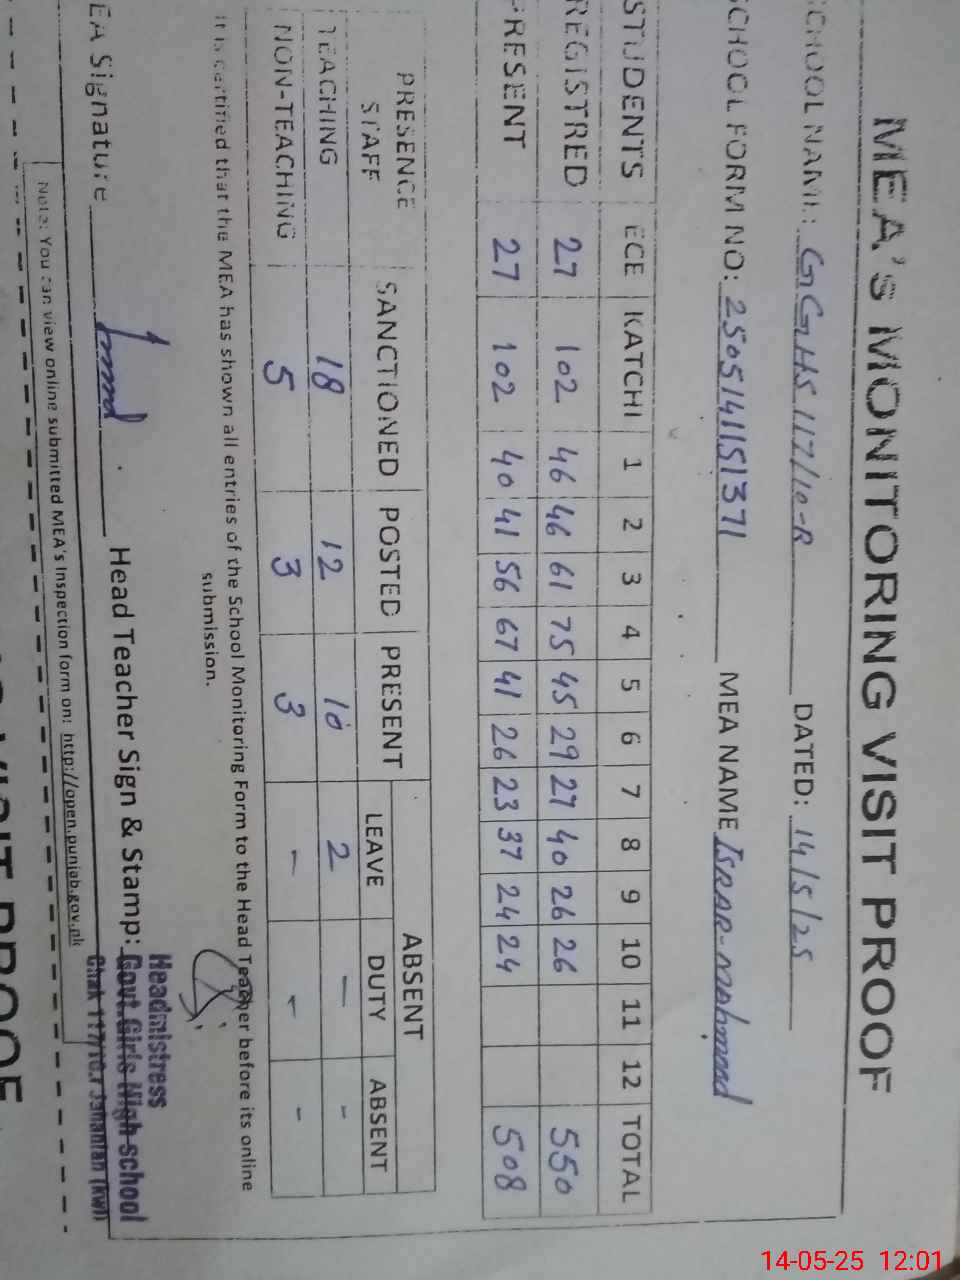 MEA's MONITORING VISIT PROOF
SCHOOL NAME: GGHS 117/10-R DATED: 14/5/25
SCHOOL FORM NO: 2505141151371 MEA NAME ISRAR-mahmood
STUDENTS ECE KATCHI 1 2 3 4 5 6 7 8 9 10 11 12 TOTAL
REGISTRED 27 102 46 46 61 75 45 29 27 40 26 26 550
PRESENT 27 102 40 41 56 67 41 26 23 37 24 24 508
PRESENCE STAFF SANCTIONED POSTED PRESENT ABSENT
LEAVE DUTY ABSENT
TEACHING 18 12 10 2 - -
NON-TEACHING 5 3 3 - - -
It is certified that the MEA has shown all entries of the School Monitoring Form to the Head Teacher before its online
submission.
EA Signature Head Teacher Sign & Stamp:
Headmistress
Govt.Girls High school
Chak 117/10.r Jahanian (kwl)
Note: You can view online submitted MEA's Inspection form on: http://open.punjab.gov.pk
VISIT PROOF
14-05-25 12:01